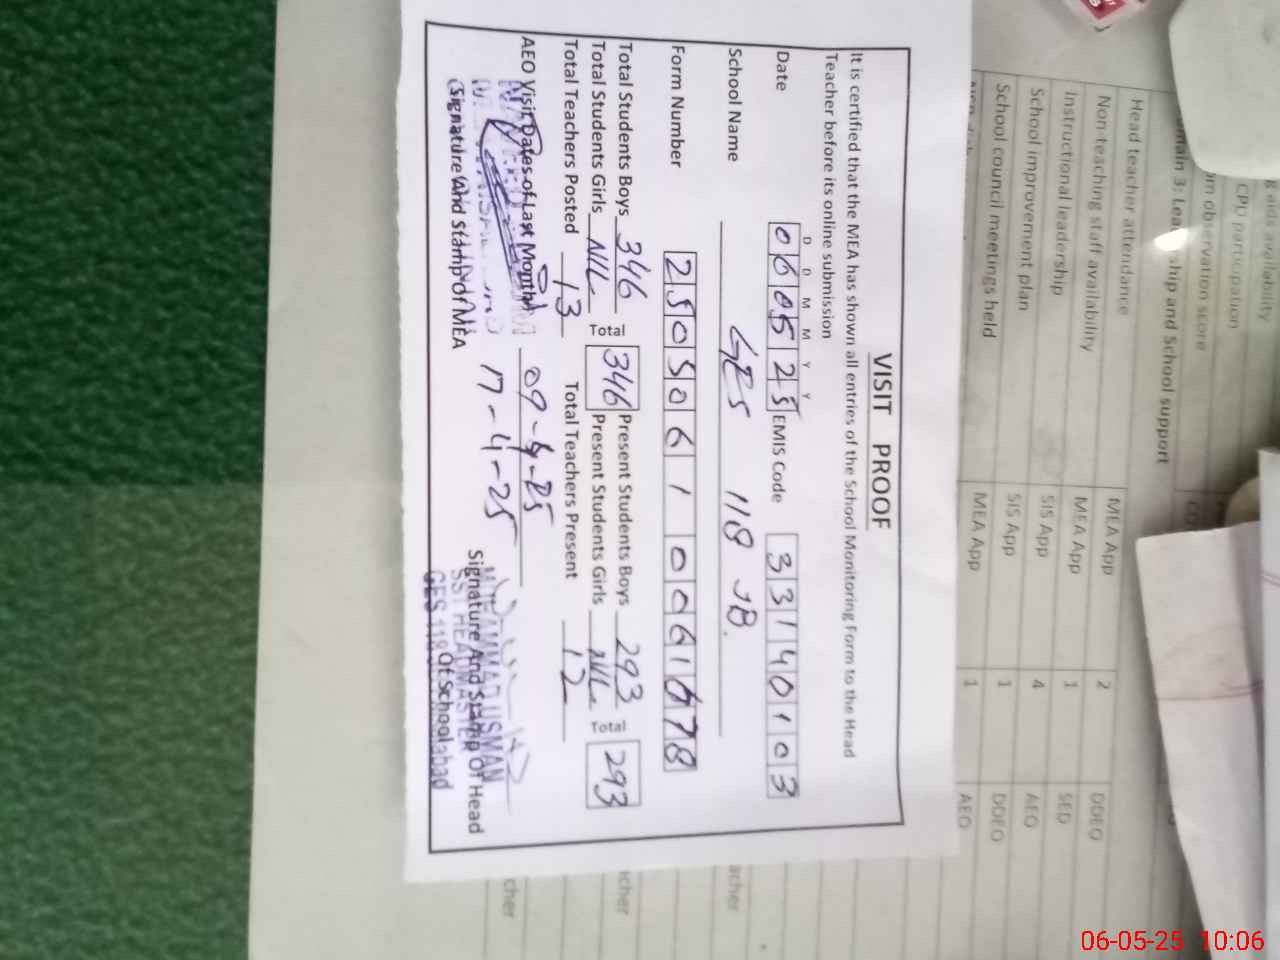 VISIT PROOF
It is certified that the MEA has shown all entries of the School Monitoring Form to the Head
Teacher before its online submission
D D M M Y Y
Date 060525 EMIS Code 33140103
School Name GES 118 JB.
Form Number 2505061 0061678
Total Students Boys 346 Total 346 Present Students Boys 293 Total 293
Total Students Girls NIL Present Students Girls NIL
Total Teachers Posted 13 Total Teachers Present 12
AEO Visit Dates of Last Month 09-4-25
17-4-25
Signature And Stamp of MEA
Signature And Stamp Of Head
Of School
MUHAMMAD USMAN
SST HEADMASTER
GES 118
CPD participation
observation score
Domain 3: Leadership and School support
Head teacher attendance MEA App 2 DDEO
Non-teaching staff availability MEA App 1 SED
Instructional leadership SIS App 4 AEO
School improvement plan SIS App 1 DDEO
School council meetings held MEA App 1 AEO
06-05-25 10:06